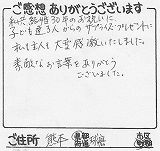 ご感想 ありがとうございます
私共結婚30年のお祝いに、
子ども達3人からのサプライズプレゼントに
私も主人も大変感激いたしました。
素敵なお言葉をありがとう
ございました。
ご住所 熊本 都道府県 市区町村